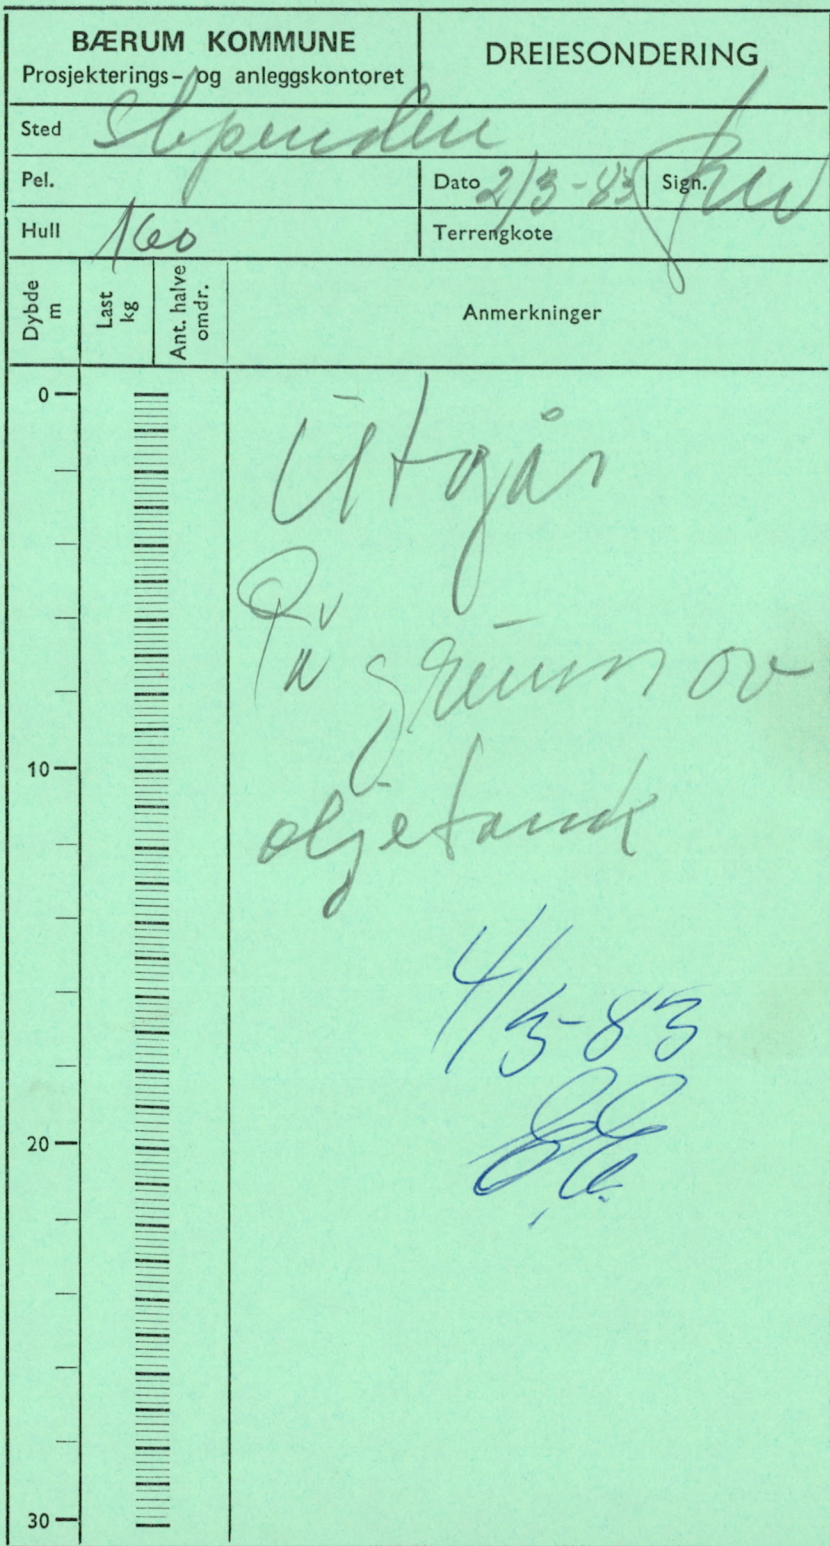 BÆRUM KOMMUNE
Prosjekterings- og anleggskontoret
DREIESONDERING
Sted Slependen
Pel.
Dato 2/3-83
Sign.
Hull 160
Terrengkote
Dybde m
Last kg
Ant. halve omdr.
Anmerkninger
0
10
20
30
Utgår
På grunn av
oljetank
4/3-83